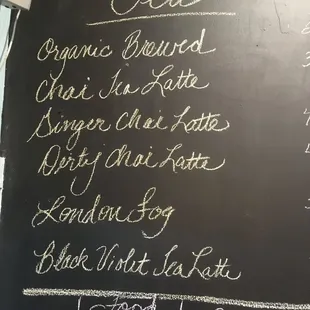 Organic Brewed
Chai Tea Latte
Ginger Chai Latte
Dirty Chai Latte
London Fog
Black Violet Tea Latte
Food